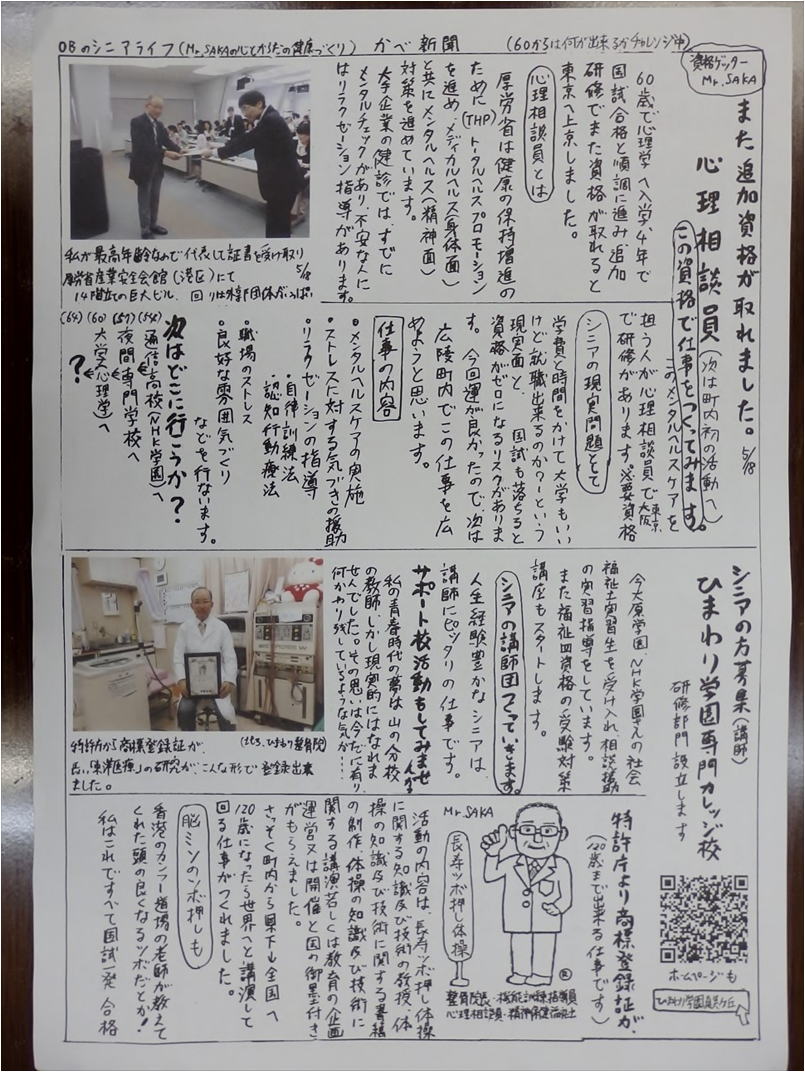 OBのシニアライフ(Mr.SAKAの心とからだの健康づくり) かべ新聞 (60からは何が出来るかチャレンジ中)
資格ゲッター
Mr.SAKA
また追加資格が取れました。5/18
心理相談員(次は町内初の活動へ)
この資格で仕事をつくってみます。
60歳で心理学へ入学、4年で
国試合格と順調に進み追加
研修でまた資格が取れると
東京へ上京しました。
心理相談員とは
厚労省は健康の保持増進の
ために(THP)トータルヘルスプロモーション
を進め、メディカルヘルス(身体面)
と共にメンタルヘルス(精神面)
対策を進めています。
大手企業の健診では、すでに
メンタルチェックがあり、不安な人に
はリラクゼーション指導があります。
私が最高年齢なので代表して証書を受け取り
厚労省産業安全会館(港区)にて 5/18
14階立ての巨大ビル、回りは外部団体がいっぱい
このメンタルヘルスケアを
担う人が心理相談員で東京、大阪
で研修があります。※必要資格
シニアの現実問題として
学費と時間をかけて大学もいい
けど就職出来るのか?ーという
現実面と、国試も落ちると
資格がゼロになるリスクがありま
す。今回運が良かったので、次は
広陵町内でこの仕事を広
めようと思います。
仕事の内容
・メンタルヘルスケアの実施
・ストレスに対する気づきの援助
・リラクゼーションの指導
・自律訓練法
・認知行動療法
・職場のストレス
・良好な雰囲気づくり
などを行ないます。
次はどこに行こうか?
(54)通信高校(NHK学園)へ
(57)夜間専門学校へ
(60)大学(心理学)へ
(64)?
シニアの方募集(講師)
ひまわり学園専門カレッジ校
研修部門設立します
今大原学園、NHK学園さんの社会
福祉士実習生を受け入れ、相談援助
の実習指導をしています。
また福祉四資格の受験対策
講座もスタートします。
シニアの講師団つくっていきます。
人生経験豊かなシニアは、
講師にピッタリの仕事です。
サポート校活動もしてみませんか
私の青春時代の夢は山の分校
の教師、しかし現実的にはなれま
せんでした。その思いは今だに有り
何かやり残しているような気が‥‥
特許庁から商標登録証が、
(ひまわり整骨院)
長い「東洋医療」の研究が、こんな形で登録出来
ました。
特許庁より商標登録証が、
(120歳まで出来る仕事です)
ホームページも
ひまわり学園真美ケ丘
Mr.SAKA
長寿ツボ押し体操
®
整骨院長・機能訓練指導員
心理相談員・精神保健福祉士
活動の内容は、長寿ツボ押し体操
に関する知識及び技術の教授、体
操の知識及び技術に関する書籍
の制作、体操の知識及び技術に
関する講演若しくは教育の企画
運営又は開催と国の御墨付き
がもらえました。
さっそく町内から県下→全国へ
120歳になったら世界へと講演して
回る仕事がつくれました。
脳ミソのツボ押しも
香港のカンフー道場の老師が教えて
くれた頭の良くなるツボだとか!
私はこれですべて国試一発合格